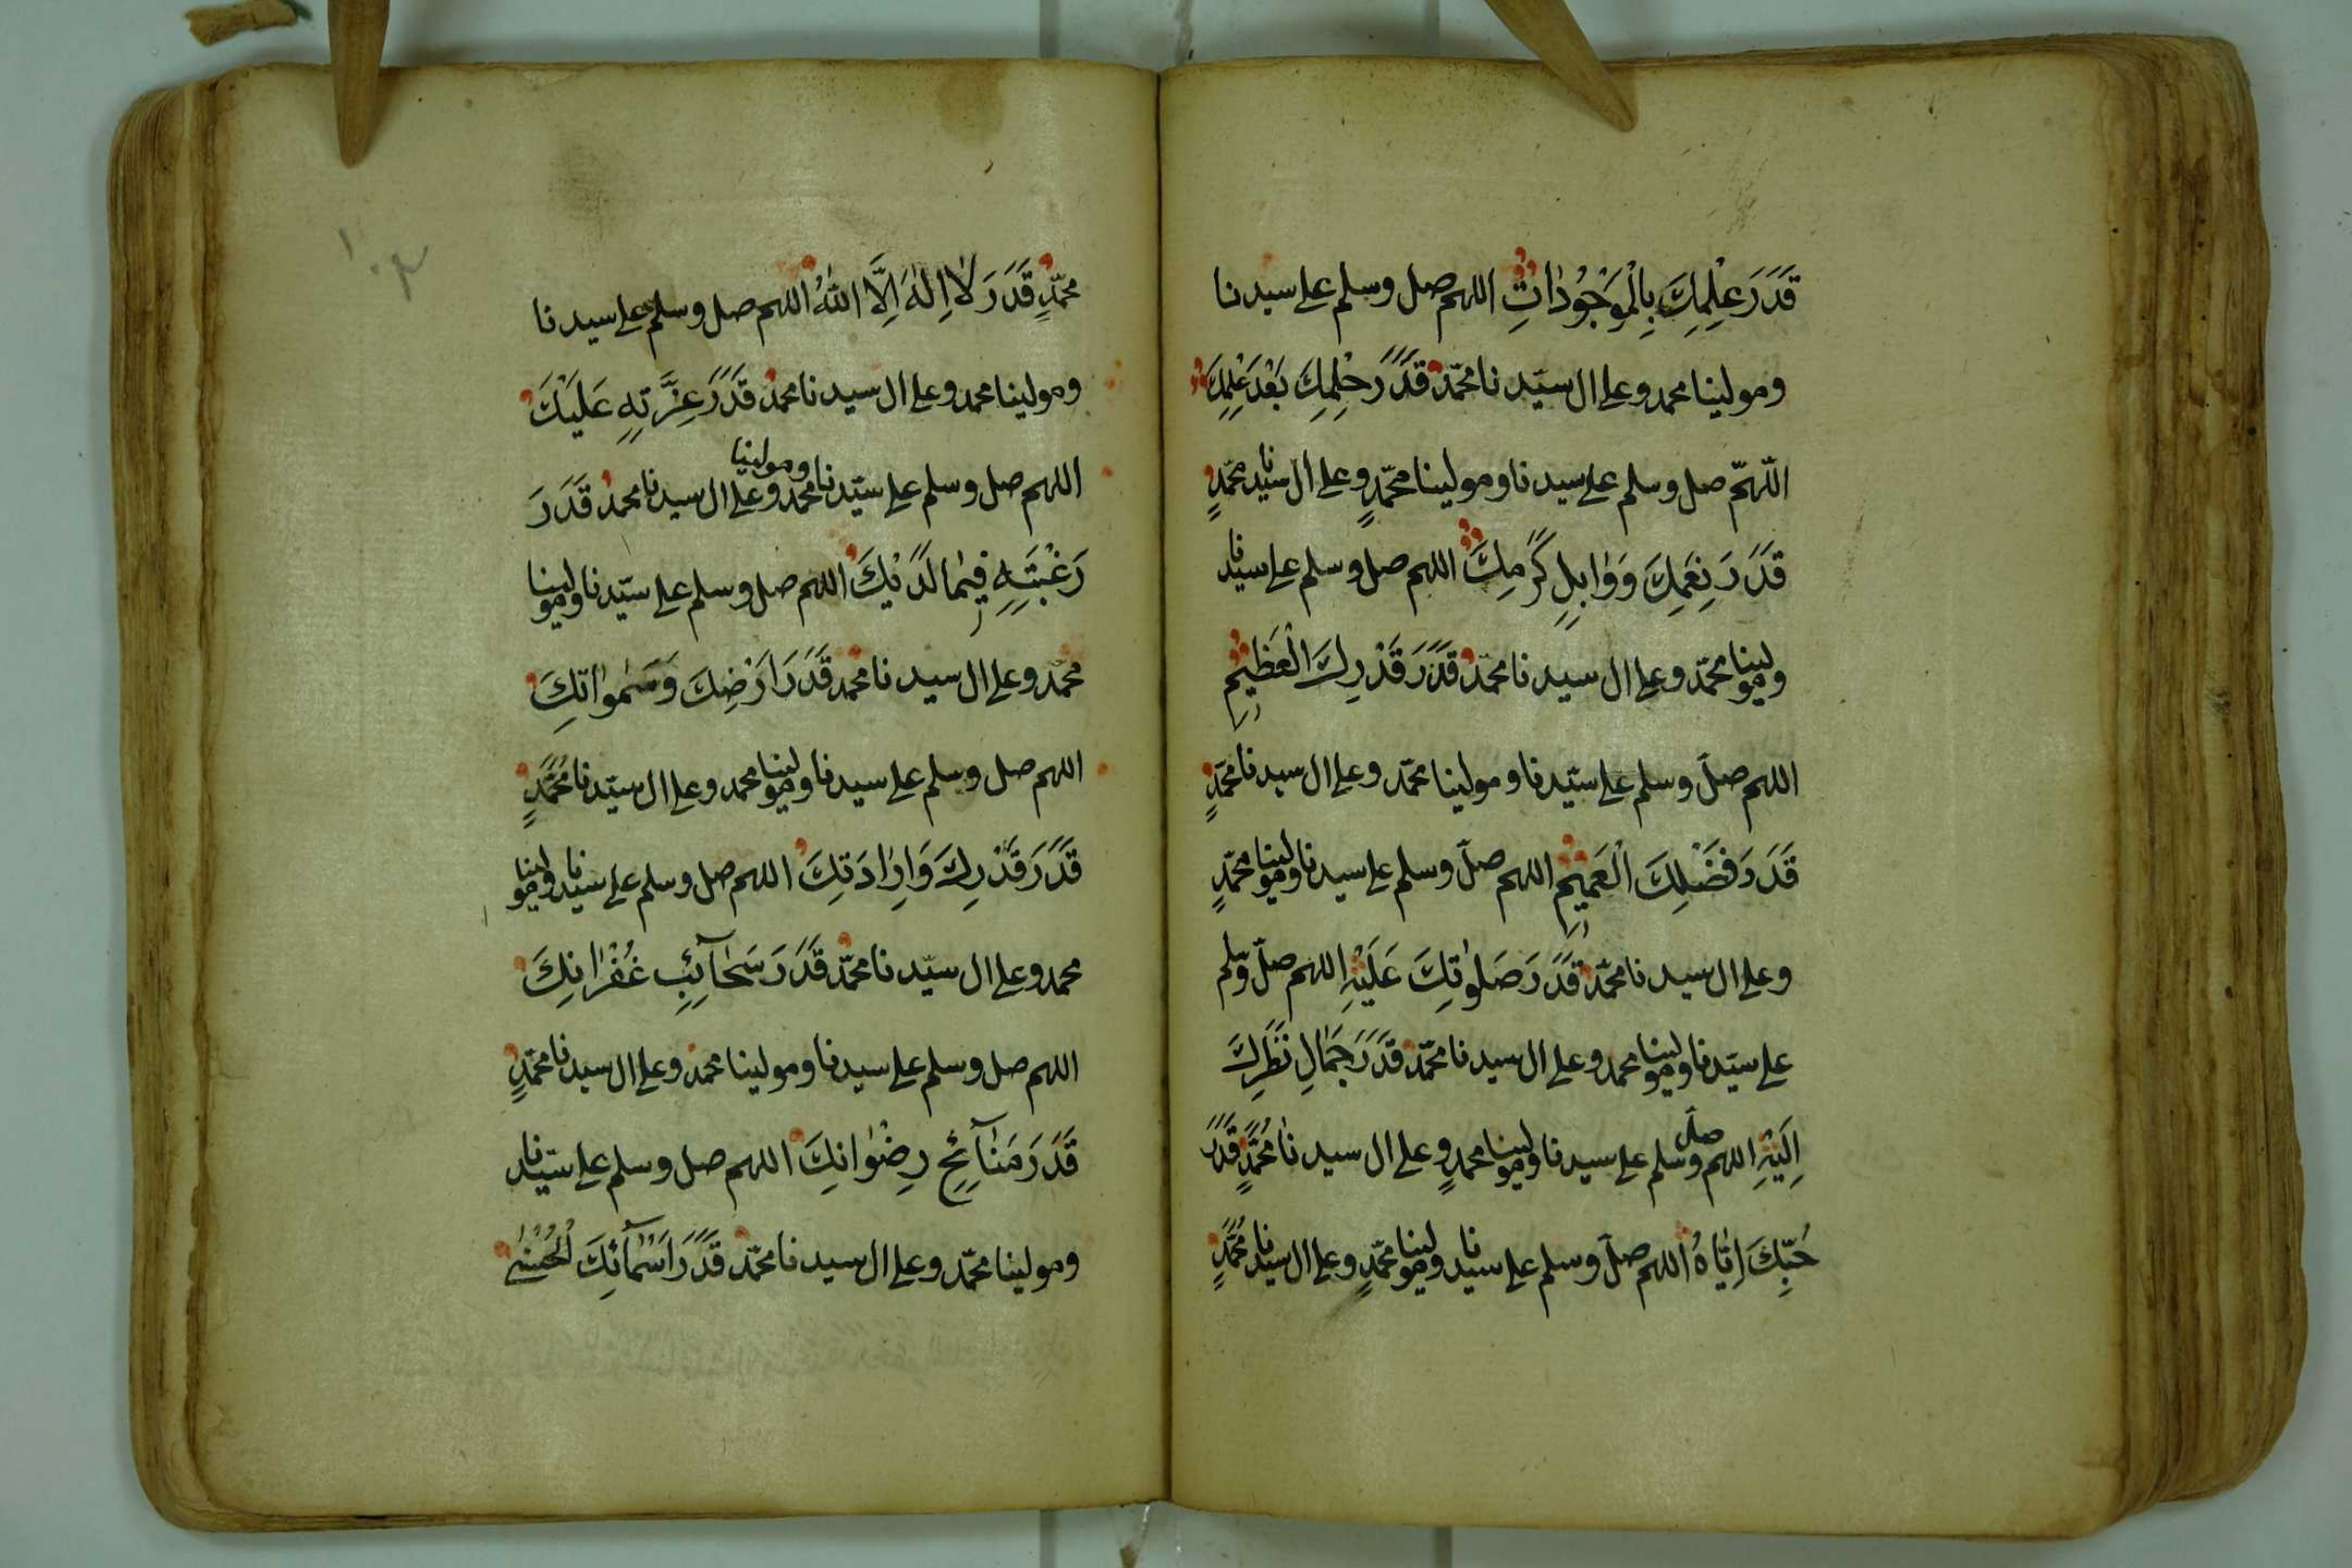 قَدَرَ عِلْمِكَ بِالْمَوْجُودَاتِ اللهم صل وسلم على سيدنا
ومولينا محمد وعلى ال سيّدنا محمّد قَدَرَ حِلْمِكَ بَعْدَ عِلْمِكَ
اللّهمّ صل وسلم على سيدنا ومولينا محمّدٍ وعلى ال سيدنا محمّدٍ
قَدَرَ نِعَمِكَ وَوَابِلِ كَرَمِكَ اللهم صل وسلم على سيدنا
ومولينا محمّد وعلى ال سيدنا محمّد قَدَرَ قَدْرِكَ الْعَظِيْمِ
اللهم صلّ وسلم على سيّدنا ومولينا محمّد وعلى ال سيدنا محمّدٍ
قَدَرَ فَضْلِكَ الْعَمِيْمِ اللهم صلّ وسلم على سيدنا ومولينا محمّدٍ
وعلى ال سيدنا محمّد قَدَرَ صَلَوٰتِكَ عَلَيْهِ اللهم صلّ وسلم
على سيّدنا ومولينا محمد وعلى ال سيدنا محمّد قَدَرَ جَمَالِ نَظَرِكَ
اِلَيْهِ اللهم صلّ وسلم على سيدنا ومولينا محمدٍ وعلى ال سيدنا مُحَمَّدٍ قَدَرَ
حُبِّكَ اِيَّاهُ اللهم صلّ وسلم على سيدنا ومولينا محمّدٍ وعلى ال سيدنا مُحَمَّدٍ
١٠٣
محمّدٍ قَدَرَ لَا اِلٰهَ اِلَّا اللهُ اللهم صل وسلم على سيدنا
ومولينا محمد وعلى ال سيدنا محمد قَدَرَ عِزَّتِهِ عَلَيْكَ
اللهم صل وسلم على سيّدنا ومولينا محمد وعلى ال سيدنا محمد قَدَرَ
رَغْبَتِهِ فِيْمَا لَدَيْكَ اللهم صل وسلم على سيّدنا ومولينا
محمّد وعلى ال سيدنا محمد قَدَرَ اَرْضِكَ وَسَمٰوَاتِكَ
اللهم صل وسلم على سيدنا ومولينا محمد وعلى ال سيّدنا مُحَمَّدٍ
قَدَرَ قَدْرِكَ وَاِرَادَتِكَ اللهم صل وسلم على سيدنا ومولينا
محمد وعلى ال سيّدنا محمّد قَدَرَ سَحَآئِبِ غُفْرَانِكَ
اللهم صل وسلم على سيدنا ومولينا محمد وعلى ال سيدنا محمّدٍ
قَدَرَ مَنَآئِحِ رِضْوَانِكَ اللهم صل وسلم على سيّدنا
ومولينا محمّد وعلى ال سيدنا محمّد قَدَرَ اَسْمَآئِكَ الْحُسْنٰى